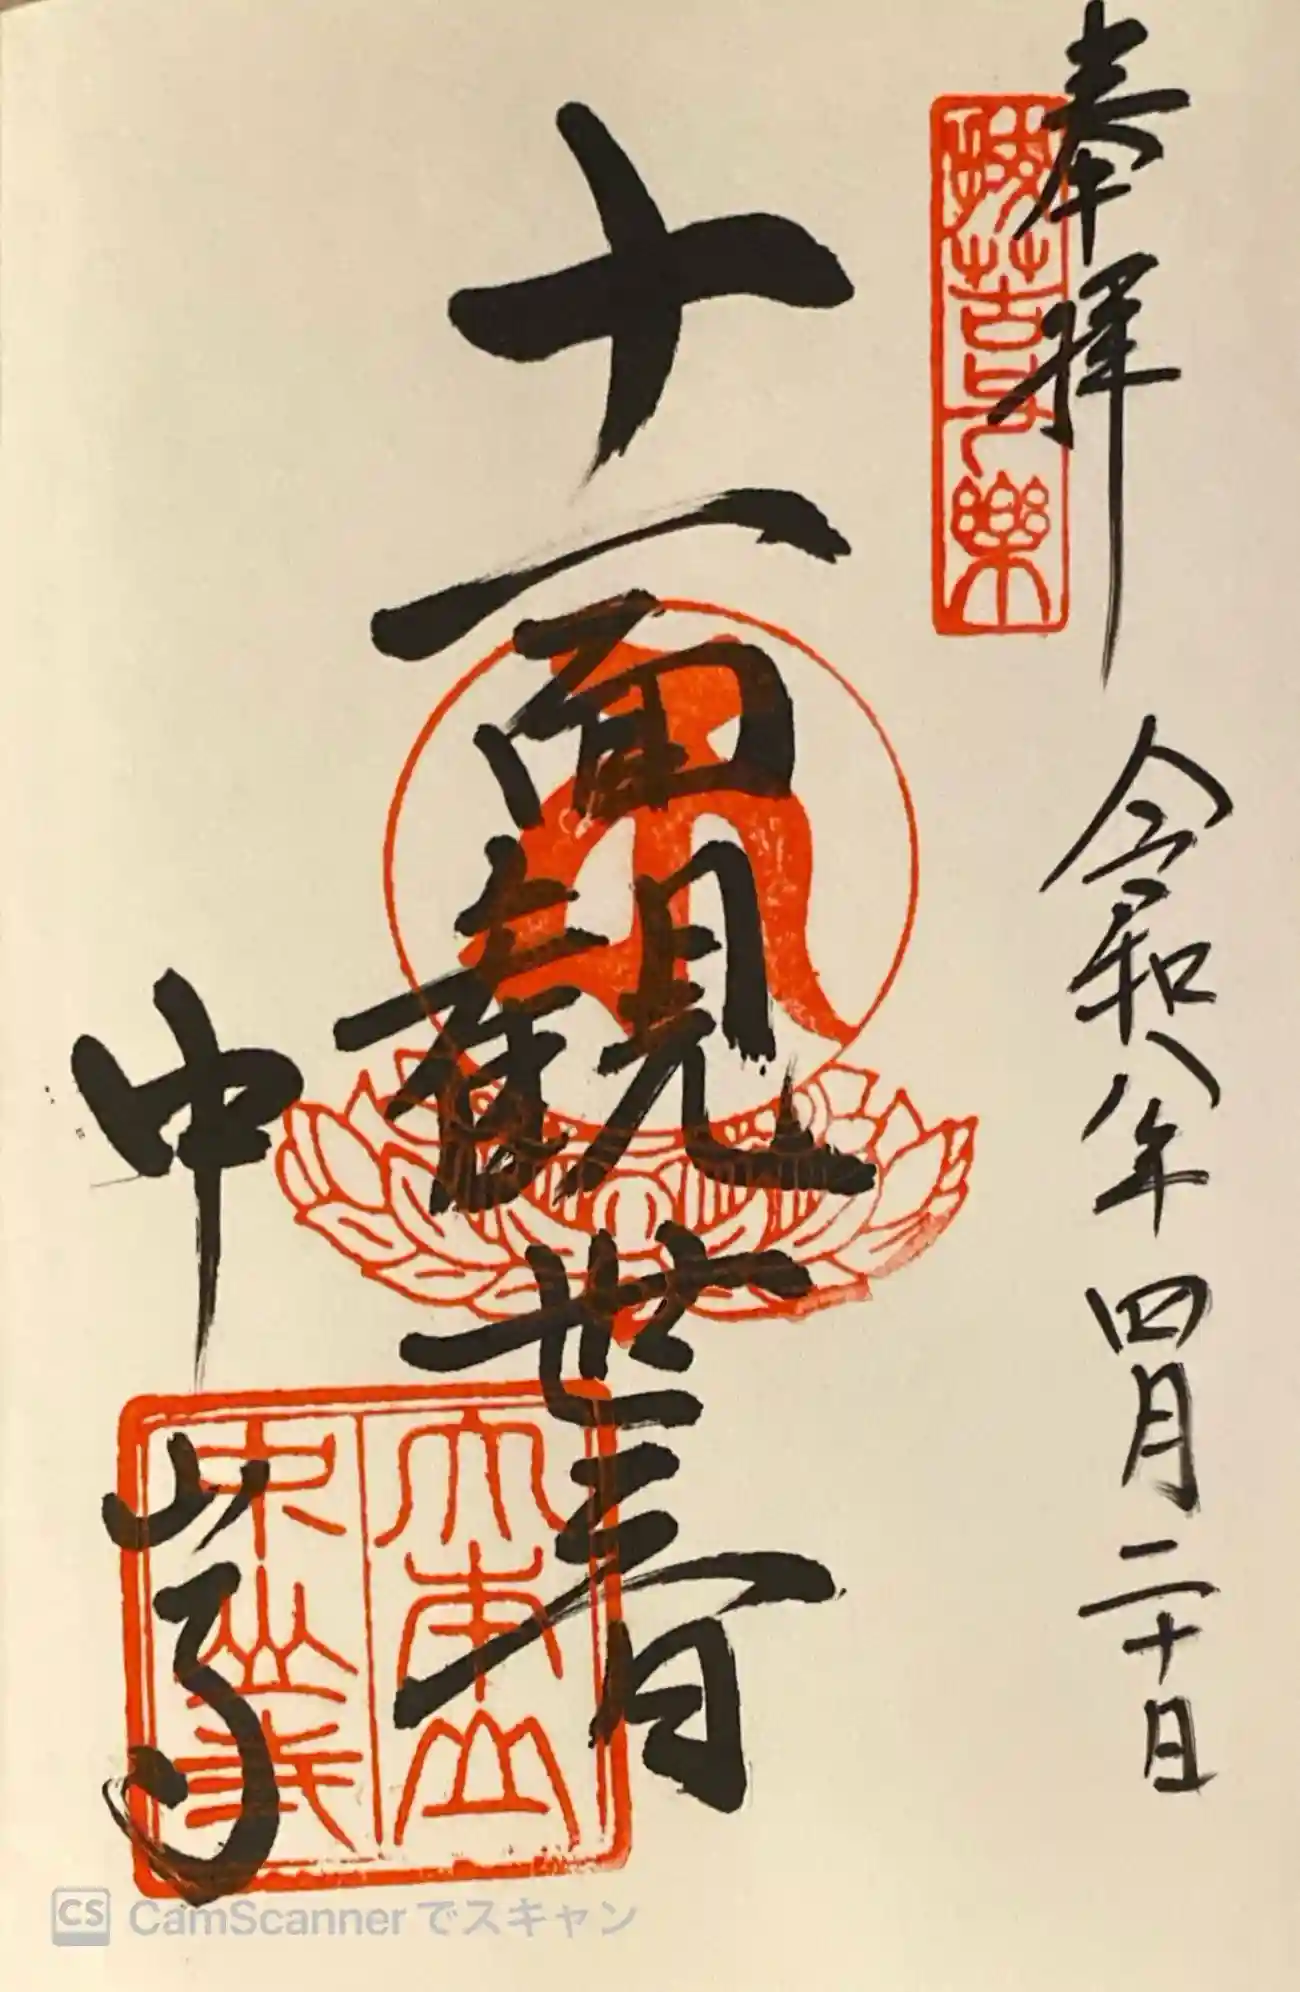 奉拝
抜苦与樂
令和八年四月二十日
十一面観世音
中山寺
CS CamScannerでスキャン